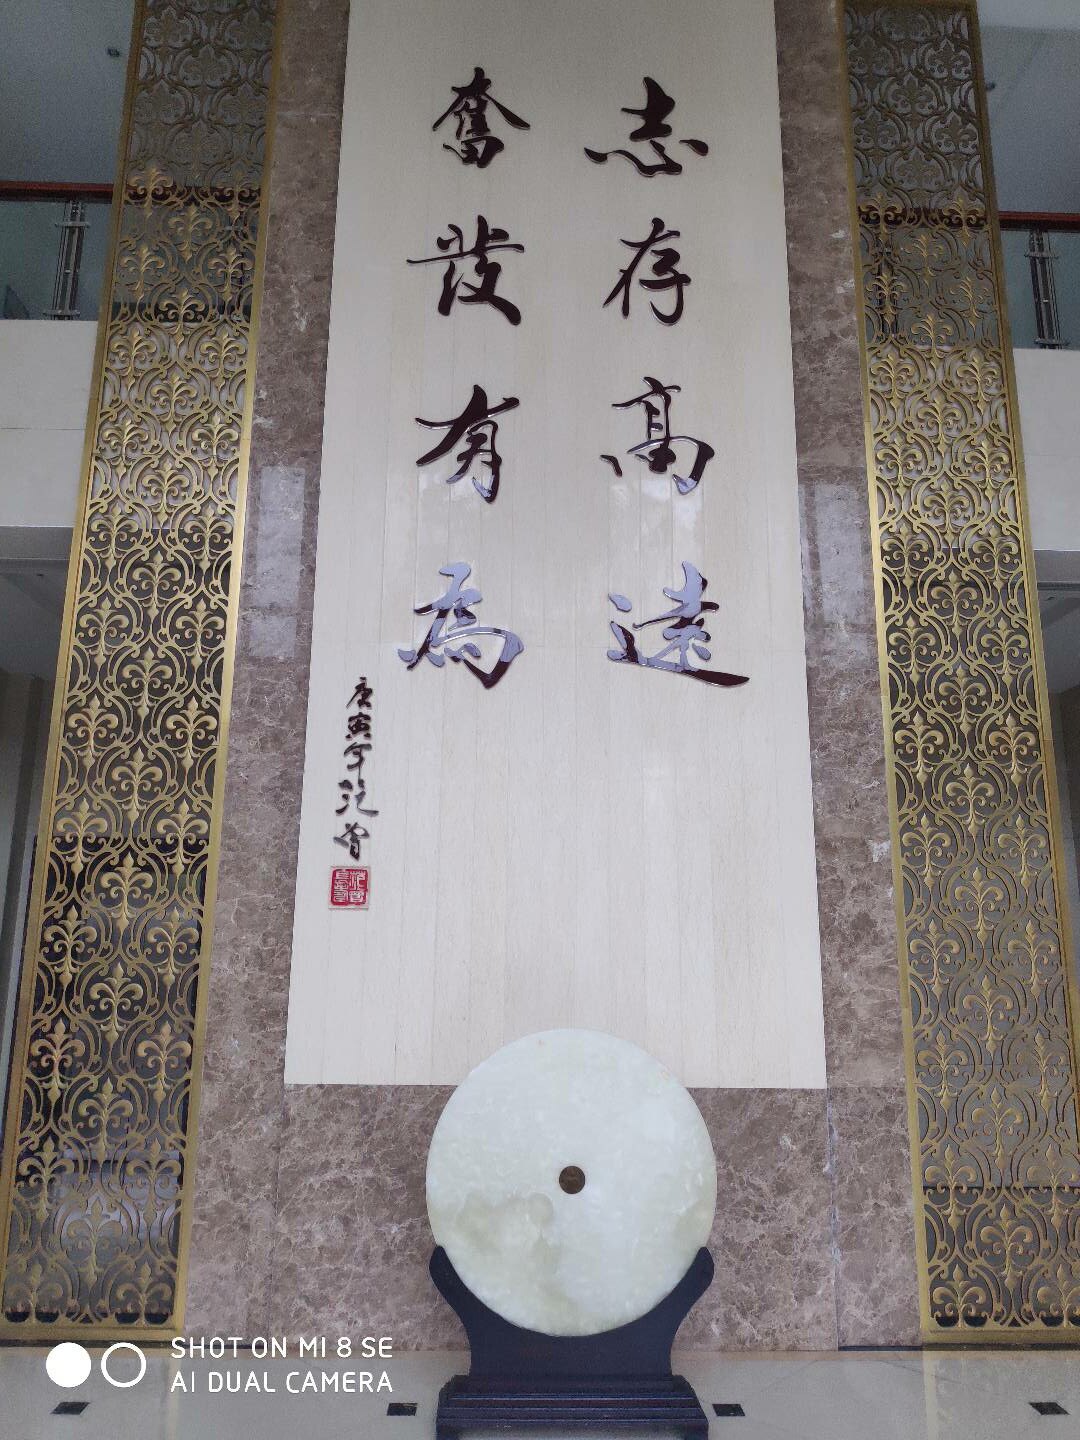 志存高遠
奮发有為
庚寅年范曾
SHOT ON MI 8 SE
AI DUAL CAMERA